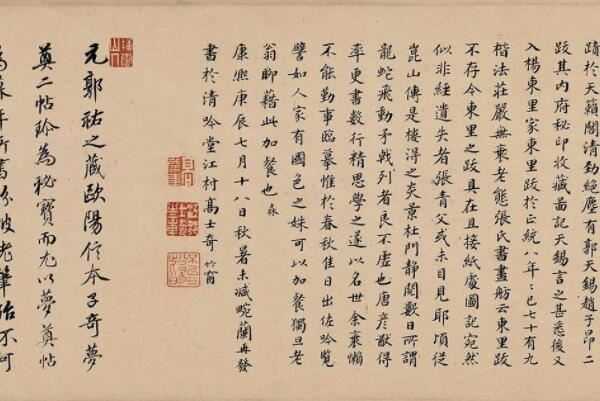 蹟於天籟閣清勁絕塵有郭天錫趙子昂二
跋其内府秘印收藏啚記天錫言之甚悉後又
入楊東里家東里跋於正統八年年已七十有九
楷法莊嚴無衰老態張氏書畫舫云東里跋
不存今東里之跋具在且接紙處圖記宛然
似非經遺失者張青父或未目見耶頃從
崑山傳是樓得之炎景杜門靜閱數日所謂
龍蛇飛動矛戟列者良不虛也唐彥猷得
率更書數行精思學之遂以名世余衰懶
不能勤事臨摹惟於春秋佳日出佐吟覽
譬如人家有國色之姝可以加餐獨旦老
翁聊藉此加餐也
康熙庚辰七月十八日秋暑未減畹蘭再發
書於清吟堂江村高士奇竹窗
元郭祐之藏歐陽信本子奇夢
奠二帖珍為秘寶而尤以夢奠帖